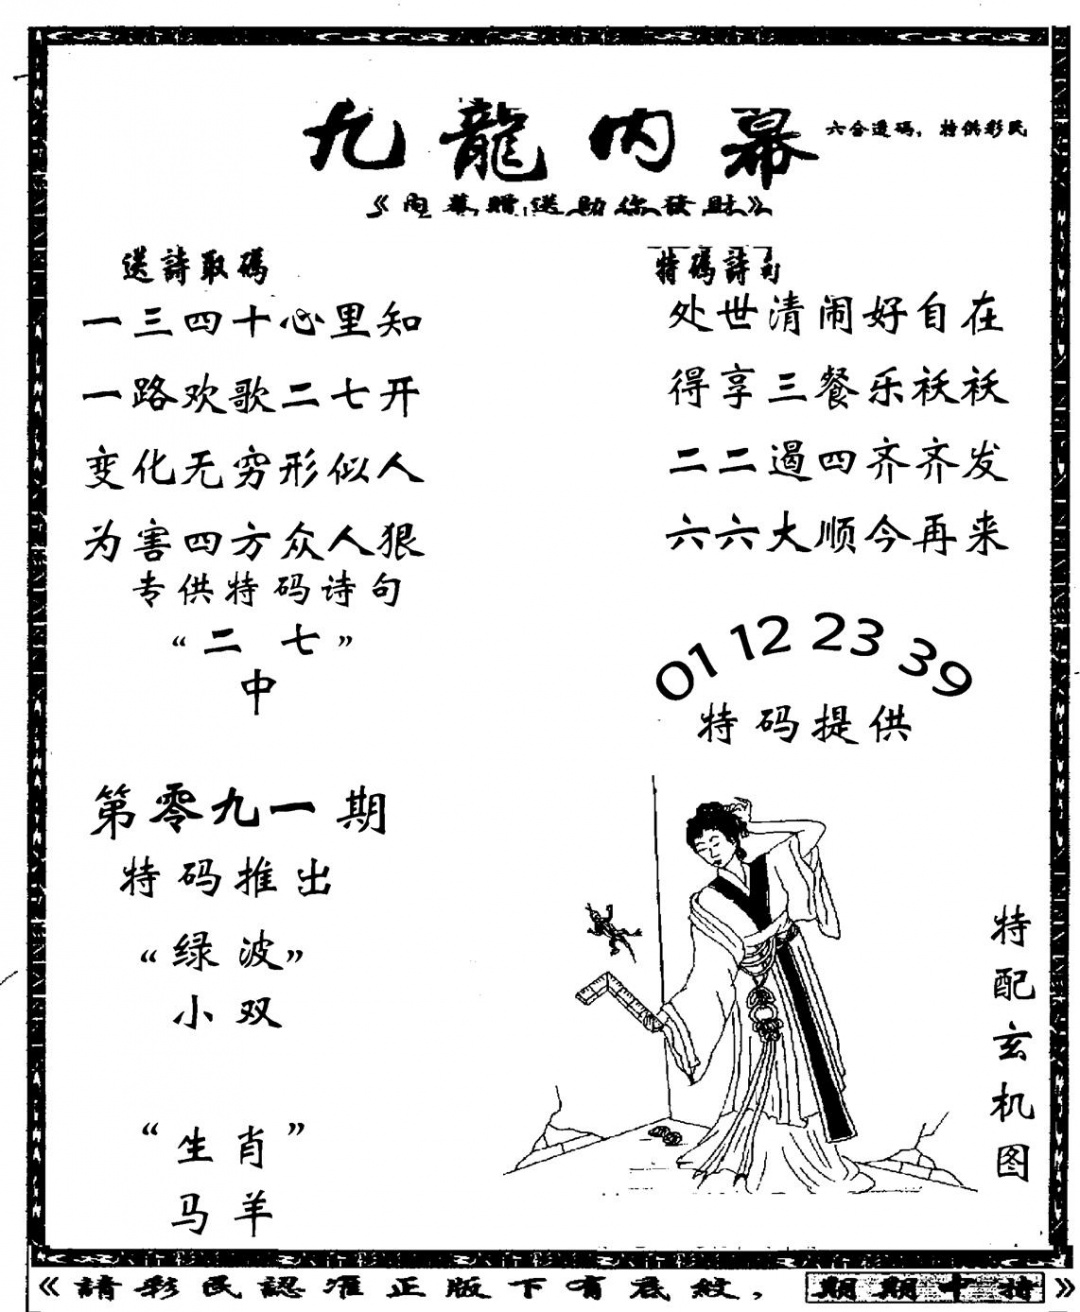 九龍内幕
六合透码，特供彩民
《内幕赠送助你發财》
送詩取碼
一三四十心里知
一路欢歌二七开
变化无穷形似人
为害四方众人狠
专供特码诗句
“二 七”
中
第零九一期
特码推出
“绿波”
小双
“生肖”
马羊
特碼詩句
处世清闹好自在
得享三餐乐袄袄
二二遏四齐齐发
六六大顺今再来
01 12 23 39
特码提供
特配玄机图
《請彩民認准正版下有底紋，期期中特》